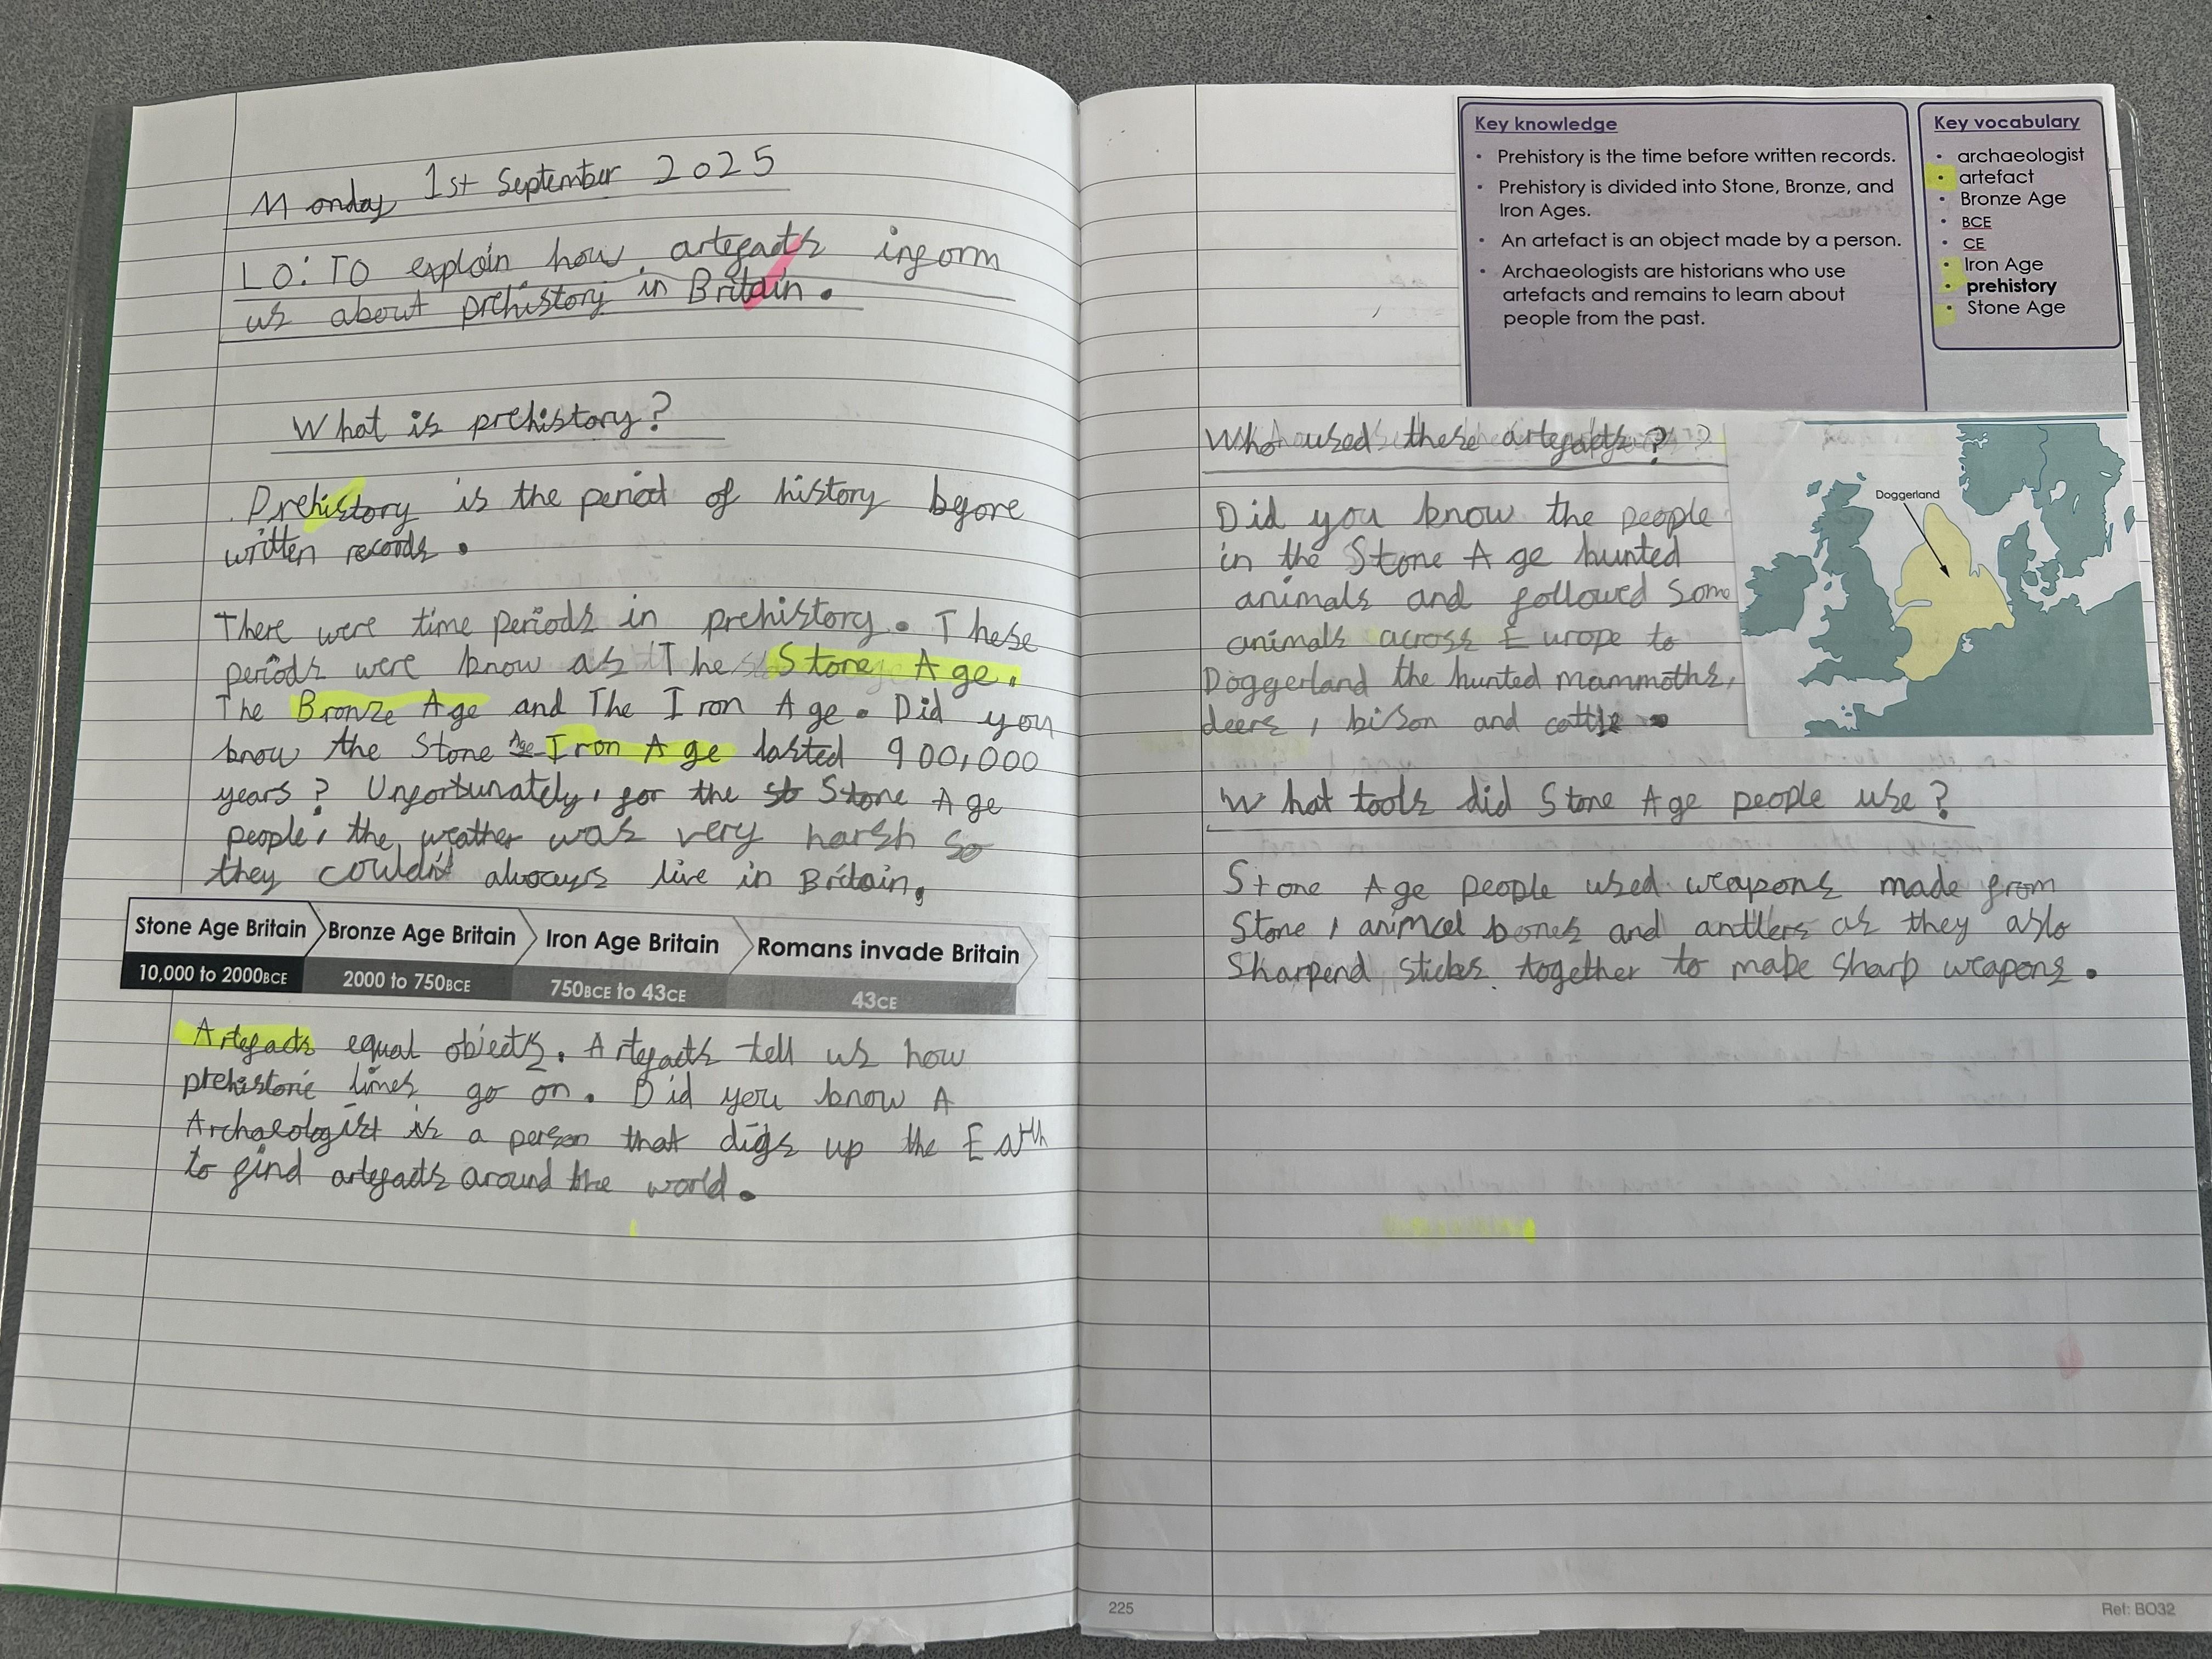 Monday 1st September 2025
LO: TO explain how artefacts inform
us about prehistory in Britain.
What is prehistory?
Prehistory is the period of history before
written records.
There were time periods in prehistory. These
periods were know as The Stone Age.
The Bronze Age and The Iron Age. Did you
know the Stone Age Iron Age lasted 900,000
years? Unfortunately, for the st Stone Age
people, the weather was very harsh so
they couldn't always live in Britain.
Stone Age Britain Bronze Age Britain Iron Age Britain Romans invade Britain
10,000 to 2000BCE 2000 to 750BCE 750BCE to 43CE 43CE
Artefacts equal objects. Artefacts tell us how
prehistoric times go on. Did you know A
Archaeologist is a person that digs up the Earth
to find artefacts around the world.
Key knowledge
• Prehistory is the time before written records.
• Prehistory is divided into Stone, Bronze, and
Iron Ages.
• An artefact is an object made by a person.
• Archaeologists are historians who use
artefacts and remains to learn about
people from the past.
Key vocabulary
• archaeologist
• artefact
• Bronze Age
• BCE
• CE
• Iron Age
• prehistory
• Stone Age
Who used these artefacts?
Doggerland
Did you know the people
in the Stone Age hunted
animals and followed some
animals across Europe to
Doggerland the hunted mammoths,
deers, bison and cattle.
What tools did Stone Age people use?
Stone Age people used weapons made from
Stone, animal bones and antlers as they aslo
Sharpend sticks together to make sharp weapons.
225
Ref: BO32